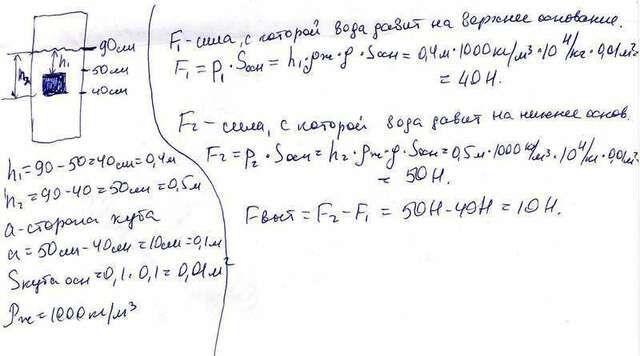 90см
h₁
h₂
50см
40см
h₁=90-50=40см=0,4м
h₂=90-40=50см=0,5м
a-сторона куба
a=50см-40см=10см=0,1м
Sкуба осн=0,1·0,1=0,01м²
ρж=1000кг/м³
F₁-сила, с которой вода давит на верхнее основание.
F₁=p₁·Sосн=h₁·ρж·g·Sосн=0,4м·1000кг/м³·10ᴴ/кг·0,01м²=
=40Н.
F₂-сила, с которой вода давит на нижнее основ.
F₂=p₂·Sосн=h₂·ρж·g·Sосн=0,5м·1000кг/м³·10ᴴ/кг·0,01м²
=50Н.
Fвыт=F₂-F₁=50Н-40Н=10Н.